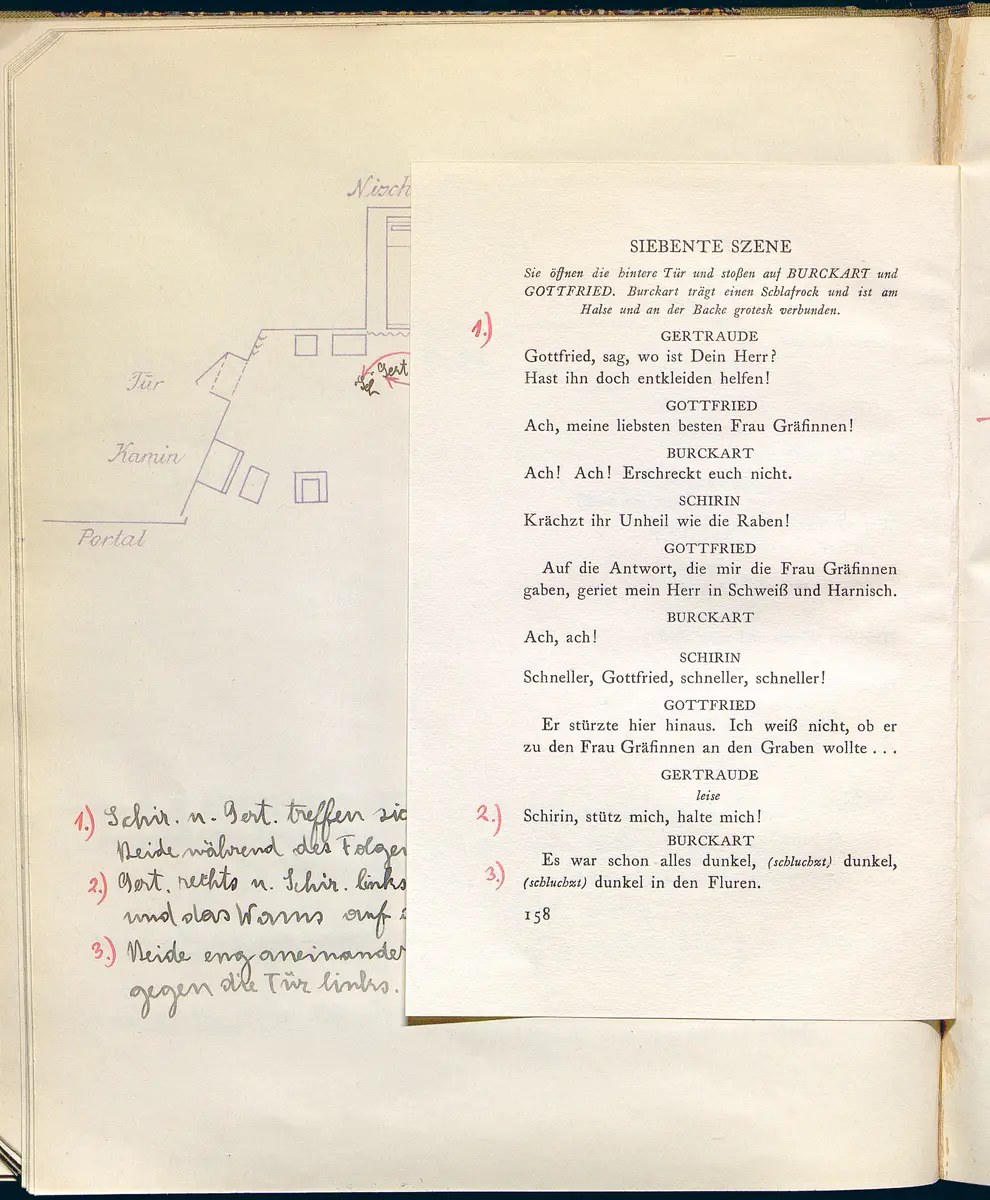 Nisch
Tür
Kamin
Portal
Gert
1.) Schir. u. Gert. treffen sic
Beide während des Folgen
2.) Gert. rechts u. Schir. links
und das Wams auf
3.) Beide eng aneinander
gegen die Tür links.
SIEBENTE SZENE
Sie öffnen die hintere Tür und stoßen auf BURCKART und
GOTTFRIED. Burckart trägt einen Schlafrock und ist am
Halse und an der Backe grotesk verbunden.
1.)
GERTRAUDE
Gottfried, sag, wo ist Dein Herr?
Hast ihn doch entkleiden helfen!
GOTTFRIED
Ach, meine liebsten besten Frau Gräfinnen!
BURCKART
Ach! Ach! Erschreckt euch nicht.
SCHIRIN
Krächzt ihr Unheil wie die Raben!
GOTTFRIED
Auf die Antwort, die mir die Frau Gräfinnen
gaben, geriet mein Herr in Schweiß und Harnisch.
BURCKART
Ach, ach!
SCHIRIN
Schneller, Gottfried, schneller, schneller!
GOTTFRIED
Er stürzte hier hinaus. Ich weiß nicht, ob er
zu den Frau Gräfinnen an den Graben wollte . . .
GERTRAUDE
leise
2.) Schirin, stütz mich, halte mich!
BURCKART
Es war schon alles dunkel, (schluchzt) dunkel,
3.) (schluchzt) dunkel in den Fluren.
158